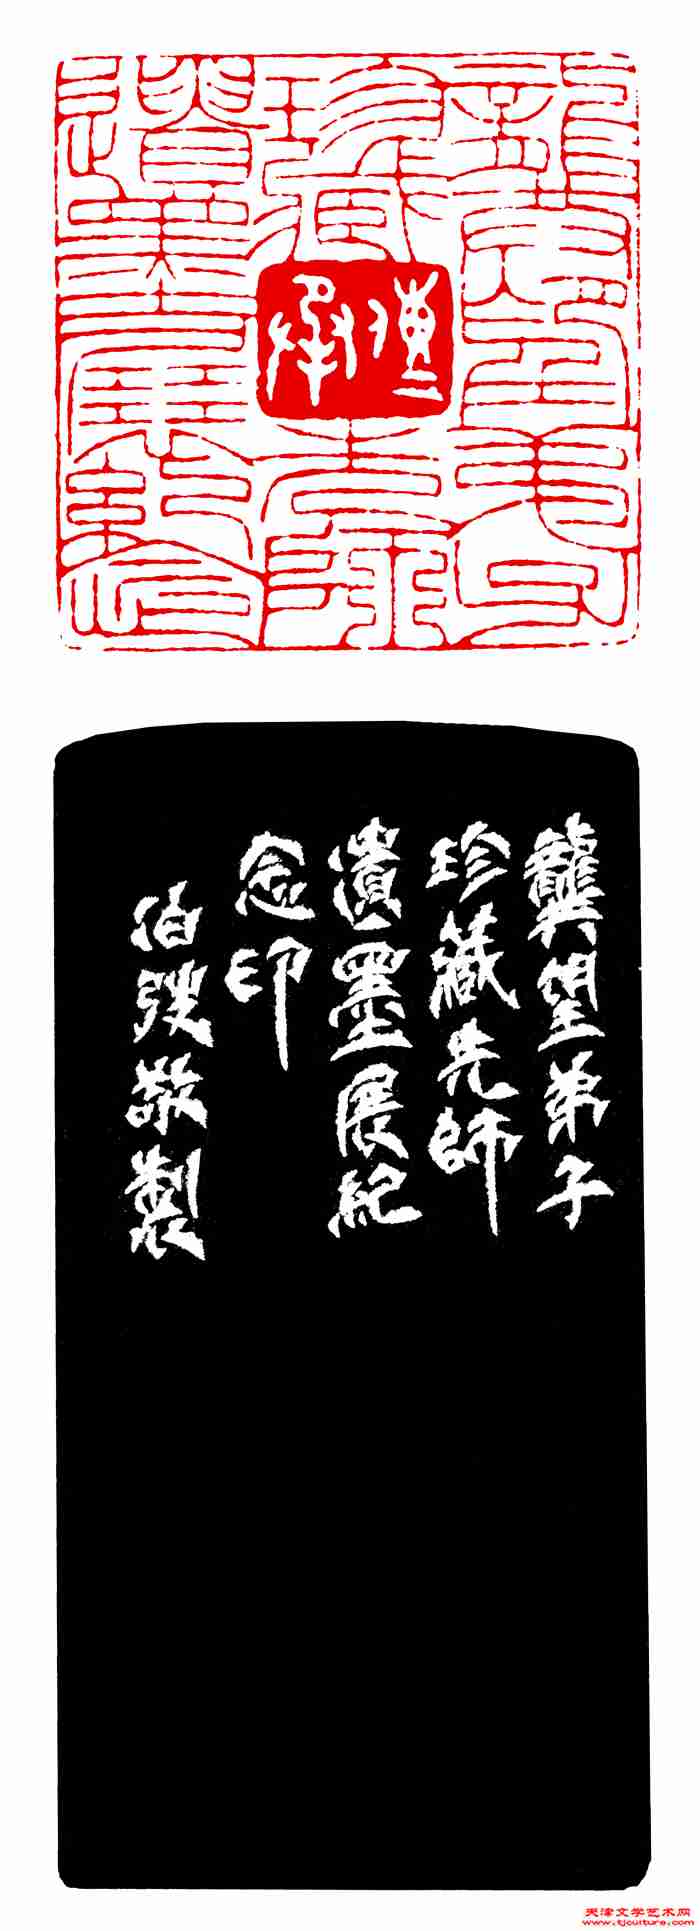 龔望弟子
珍藏先師
遺墨展紀念
龔望弟子
珍藏先師
遺墨展紀
念印
伯弢敬製
天津文学艺术网
www.tjculture.com